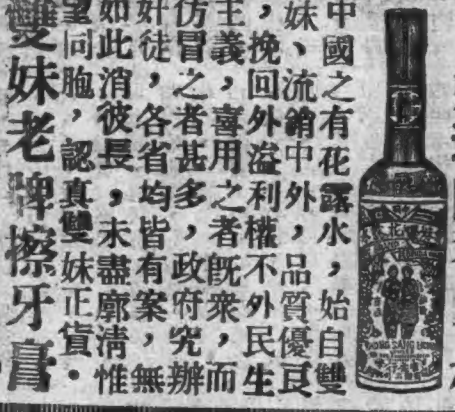 中國之有花露水，始自雙
妹、流銷中外，品質優良
，挽回外溢利權不外民生
主義，喜用之者既衆，而
仿冒之者甚多，政府究辦
奸徒，各省均皆有案，無
如此消彼長，未盡廓清惟
望同胞，認真雙妹正貨。
雙妹老牌擦牙膏
SANG